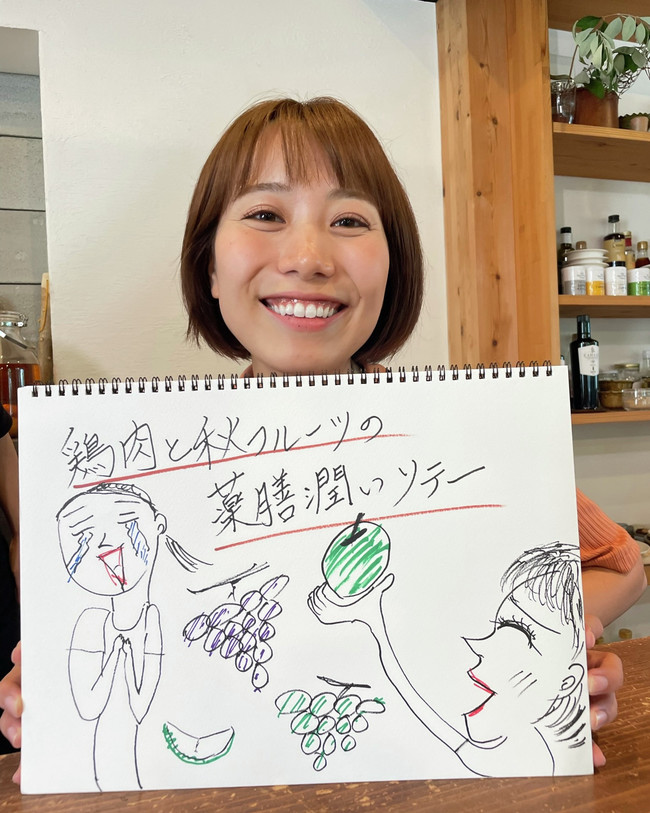 鶏肉と秋フルーツの
薬膳潤いソテー